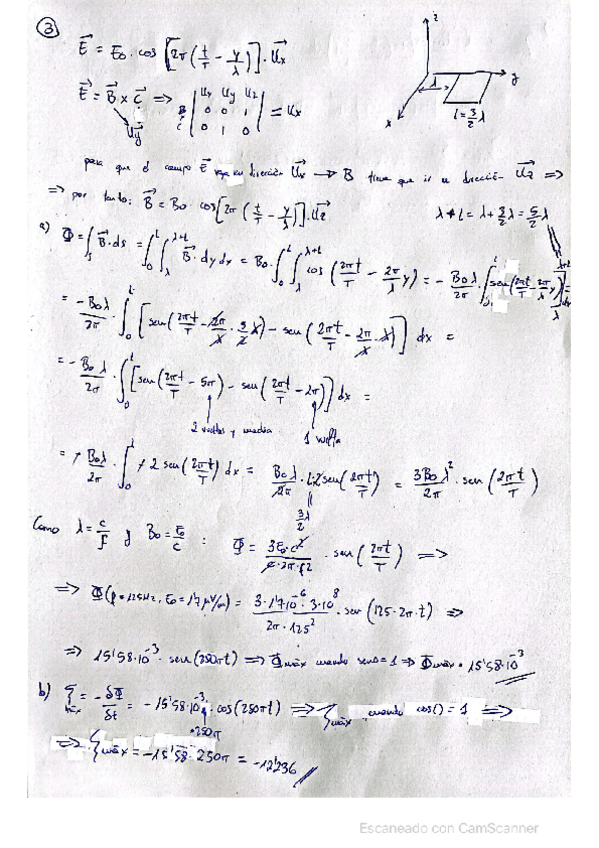 ③
z
y
x
λ
L = 3/2 λ
E⃗ = E₀ · cos [2π (t/T − y/λ)] · u⃗x
E⃗ = B⃗ × C⃗ ⇒ | ux uy uz ; B 0 0 1 ; C 0 1 0 | = ux
u⃗y
para que el campo E⃗ vaya en dirección u⃗x → B tiene que ir en dirección u⃗z ⇒
⇒ por tanto: B⃗ = B₀ · cos [2π (t/T − y/λ)] · u⃗z
λ + L = λ + 3/2 λ = 5/2 λ
a) Φ = ∫s B⃗ · ds = ∫₀^L ∫λ^(λ+L) B⃗ · dy dx = B₀ · ∫₀^L ∫λ^(λ+L) cos (2πt/T − 2π/λ y) = − B₀λ/2π · ∫₀^L [sen (2πt/T − 2π/λ y)]λ^(λ+L) dx =
= −B₀λ/2π · ∫₀^L [sen (2πt/T − 2π/λ · 5/2 λ) − sen (2πt/T − 2π/λ · λ)] dx =
= − B₀λ/2π · ∫₀^L [sen (2πt/T − 5π) − sen (2πt/T − 2π)] dx =
2 vueltas y media
1 vuelta
= − B₀λ/2π · ∫₀^L − 2 sen (2πt/T) dx = B₀λ/2π · L · 2 sen (2πt/T) = 3B₀λ²/2π · sen (2πt/T)
3/2 λ
Como λ = c/f y B₀ = E₀/c : Φ = 3E₀ · c²/c · 2π · f² · sen (2πt/T) ⇒
⇒ Φ (f = 125Hz, E₀ = 1'7 μV/m) = 3 · 1'7·10⁻⁶ · 3·10⁸/2π · 125² · sen (125 · 2π · t) ⇒
⇒ 15'58·10⁻³ · sen (250πt) ⇒ Φmáx cuando seno = 1 ⇒ Φmáx = 15'58·10⁻³
b) ξmáx = − δΦ/δt = − 15'58·10⁻³ · cos (250πt) ⇒ ξmáx cuando cos() = 1 ⇒
· 250π
⇒ ξmáx = −15'58 · 250π = −12'236
Escaneado con CamScanner